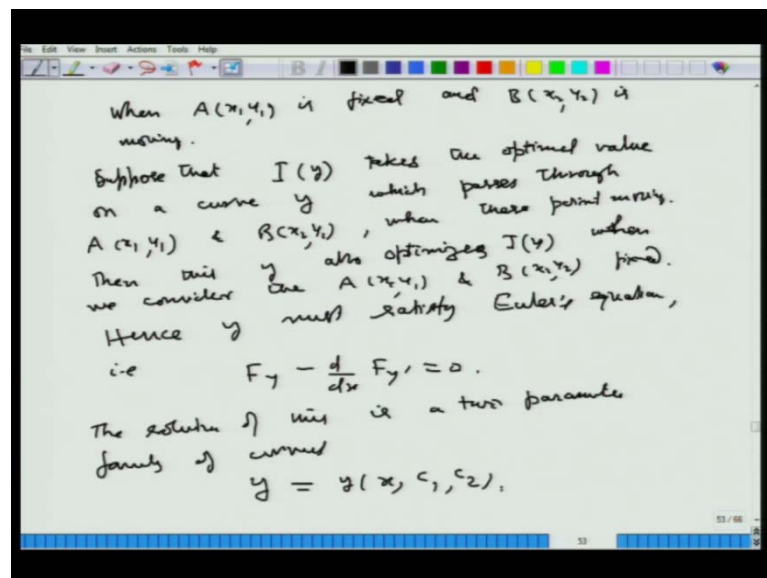 File Edit View Insert Actions Tools Help
When A(x₁,y₁) is fixed and B(x₂,y₂) is
moving.
Suppose that I(y) takes the optimal value
on a curve y which passes through
A(x₁,y₁) & B(x₂,y₂), when these point moving.
Then this y also optimizes I(y) when
we consider the A(x₁,y₁) & B(x₂,y₂) fixed.
Hence y must satisfy Euler's equation,
i.e F_y - d/dx F_y' = 0.
The solution of this is a two parameter
family of curves
y = y(x, c₁, c₂).
53 / 66
53